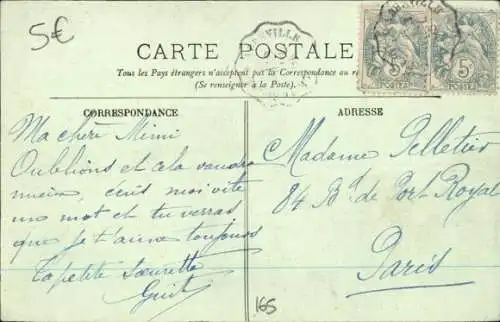 5€
CARTE POSTALE
Tous les Pays étrangers n'acceptent pas la Correspondance au
(Se renseigner à la Poste).
CORRESPONDANCE
ADRESSE
5c
POSTES
5c
POSTES
Ma chère Mimi
Oublions et cela vaudra
mieux, écris moi vite
un mot et tu verras
que je t'aime toujours
Ta petite soeurette
Madame Pelletier
84 Bd de Port Royal
Paris
165